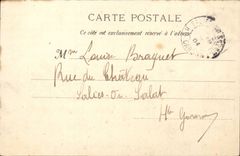 CARTE POSTALE
Ce côté est exclusivement réservé à l'adresse
Mme Louise Braquet
Rue du Château
Salies-du-Salat
Hte Garonne